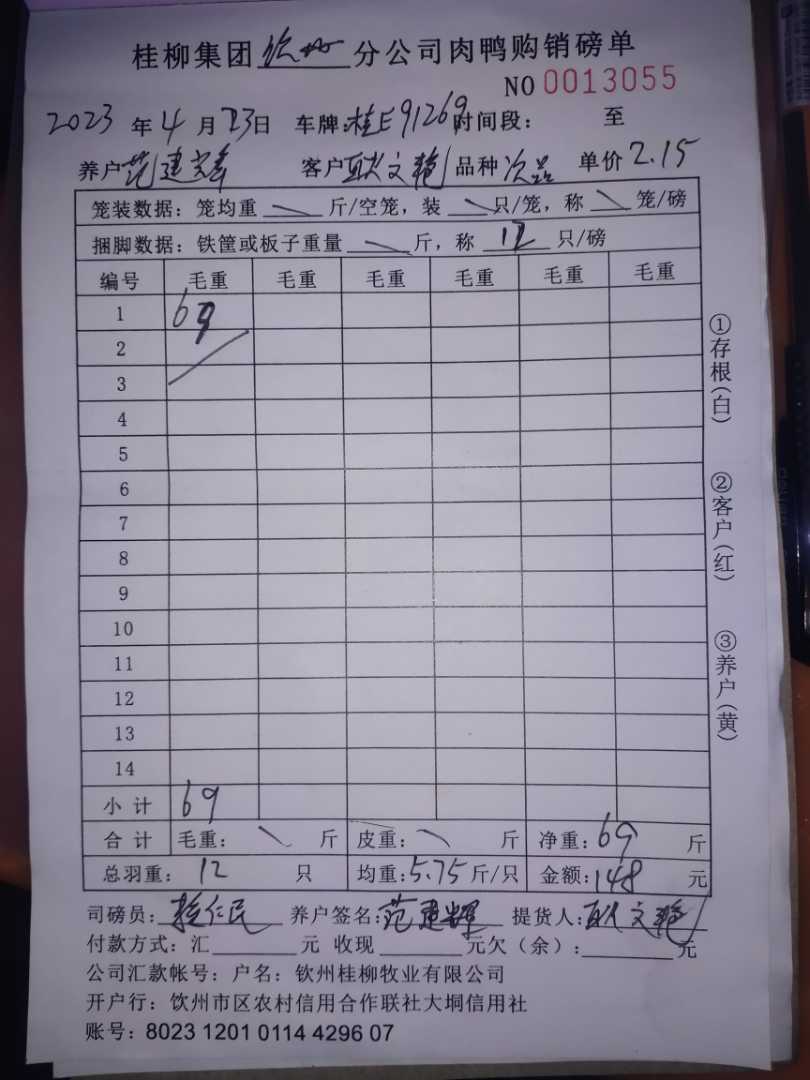 桂柳集团 钦州 分公司肉鸭购销磅单
NO 0013055
2023 年 4 月 23 日 车牌:桂E91269 时间段: 至
养户 范建 客户 耿文艳 品种 次品 单价 2.15
笼装数据:笼均重 斤/空笼,装 只/笼,称 笼/磅
捆脚数据:铁筐或板子重量 斤,称 12 只/磅
编号 毛重 毛重 毛重 毛重 毛重 毛重
1 69
2
3
4
5
6
7
8
9
10
11
12
13
14
小计 69
合计 毛重: 斤 皮重: 斤 净重:69 斤
总羽重:12 只 均重:5.75 斤/只 金额:148 元
司磅员: 仁民 养户签名:范建辉 提货人:耿文艳
付款方式:汇 元 收现 元欠(余): 元
公司汇款帐号:户名:钦州桂柳牧业有限公司
开户行:饮州市区农村信用合作联社大垌信用社
账号:8023 1201 0114 4296 07
①存根(白)
②客户(红)
③养户(黄)